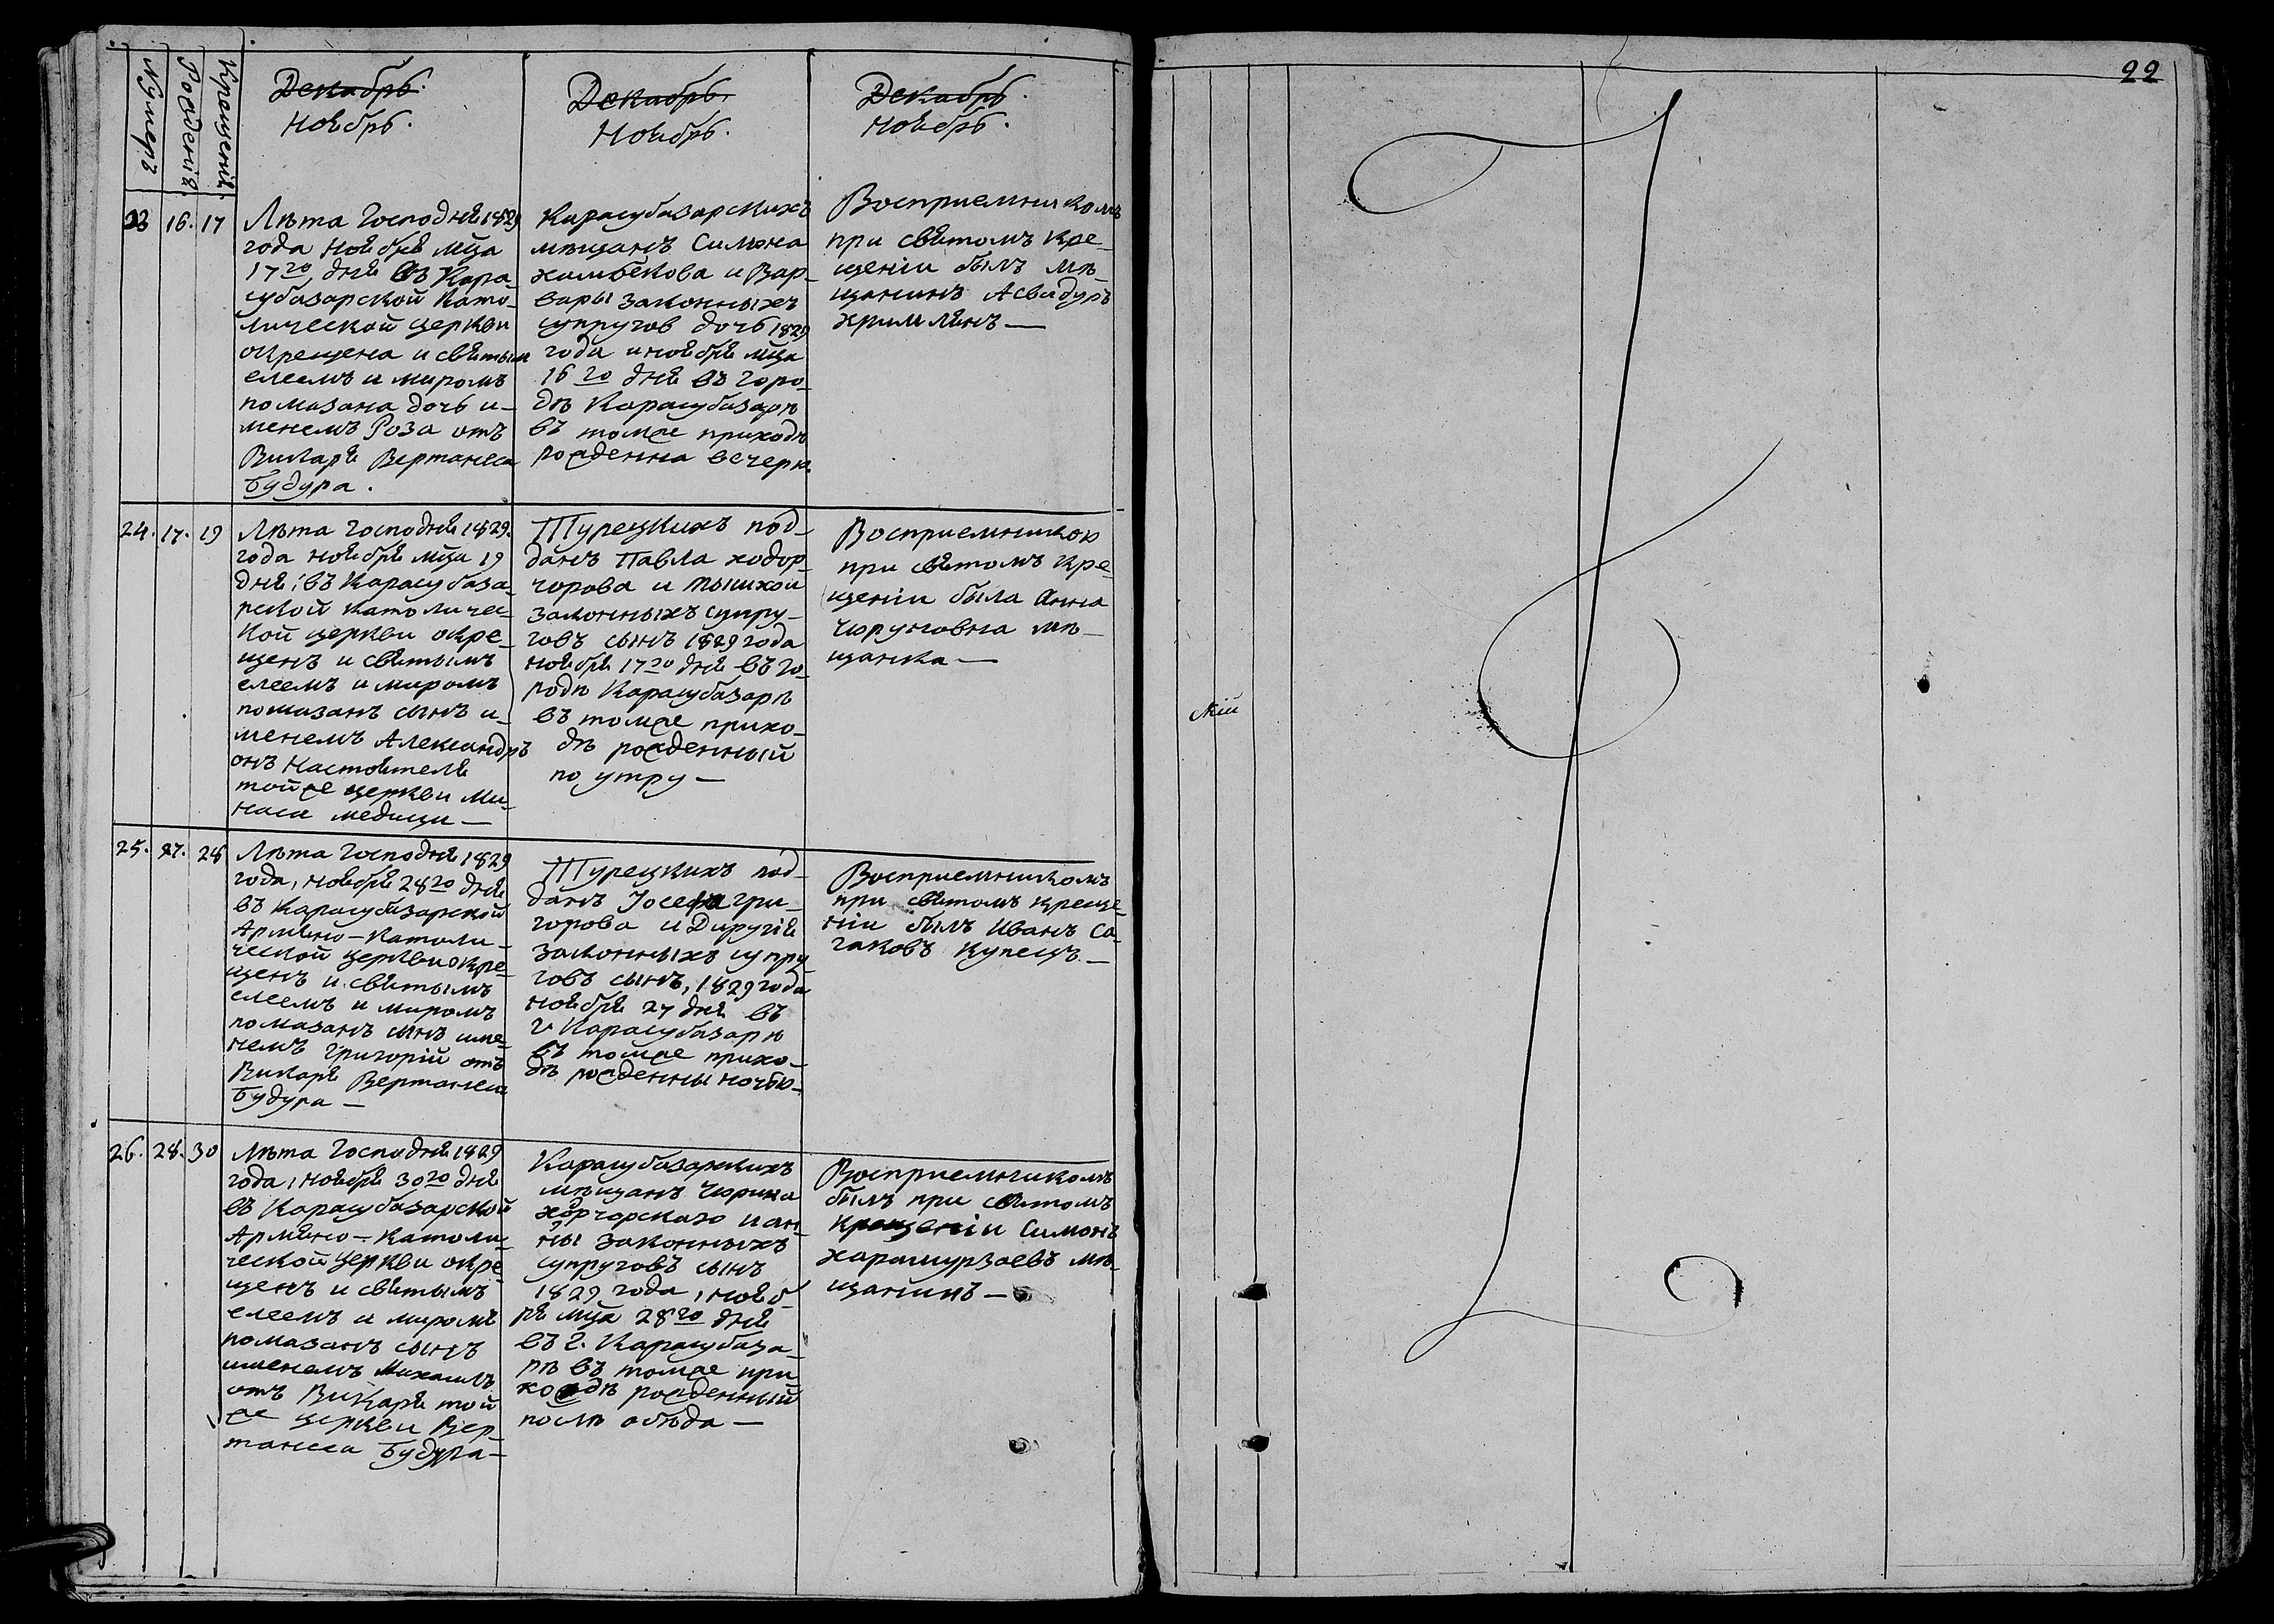 Нумеръ
Рожденія.
Крещенія.
Декабрь.
Ноябрь.
Декабрь.
Ноябрь.
Декабрь.
Ноябрь.
23
16.
17
Лѣта Господня 1829
года Ноября мца
17го дня въ Кара-
субазарской Като-
лической церкви
окрещена и святым
елеемъ и миромъ
помазана дочь и-
менемъ Роза отъ
Викарія Вертанеса
Будура.
Карасубазарскихъ
мѣщанъ Симона
хамбекова и Вар-
вары законныхъ
супругов дочь 1829
года ноября мца
16го дня въ горо-
дѣ Карасубазарѣ
въ томже приходѣ
рожденна вечеру
Восприемникомъ
при святомъ Кре-
щеніи былъ мѣ-
щанинъ Асвадуръ
хримлянъ —
24.
17.
19
Лѣта Господня 1829.
года Ноября мца 19
дня: въ Карасубаза-
рской Католичес-
кой церкви окре-
щенъ и святымъ
елеемъ и миромъ
помазанъ сынъ и-
менемъ Александръ
онъ Настоятеля
тойже церкви Ми-
наса медици —
Турецкихъ под-
данъ Павла ходор-
чорова и
законныхъ супру-
говъ сынъ 1829 года
ноября 17го дня въ го-
родѣ Карасубазарѣ
въ томже прихо-
дѣ рожденный
по утру —
Восприемникою
при святомъ Кре-
щеніи была Анна
Чоруковна мѣ-
щанка —
25.
27.
28
Лѣта Господня 1829
года, Ноября 28го дня
въ Карасубазарской
Армяно-Католи-
ческой церкви окре-
щенъ и святымъ
елеемъ и миромъ
помазанъ сынъ име-
немъ Григорій отъ
Викарія Вертанеса
Будура —
Турецкихъ под-
данъ Іосефа гри-
горова и Диругія
законныхъ супру
говъ сынъ, 1829 года
ноября 27 дня въ
г. Карасубазарѣ
въ томже прихо-
дѣ рожденны ночью-
Восприемникомъ
при святомъ креще-
ніи былъ Иванъ Са-
гаковъ Купецъ. —
26.
28.
30
Лѣта Господня 1829
года, Ноября 30го дня
въ Карасубазарской
Армяно-Католи-
ческой Церкви окре-
щенъ и святымъ
елеемъ и миромъ
помазанъ сынъ
именемъ Михаилъ
отъ Викаря той
же церкви Вер-
танеса Будура —
Карасубазарскихъ
мѣщанъ Чорика
хорчорскаго и ан-
ны законныхъ
супруговъ сынъ
1829 года, нояб-
ря мца 28го дня
въ г. Карасубаза-
рѣ въ томже при
ходѣ рожденный
послѣ обѣда —
Восприемникомъ
былъ при святомъ
Крещеніи Симонъ
харамурзаевъ мѣ-
щанинъ —
22